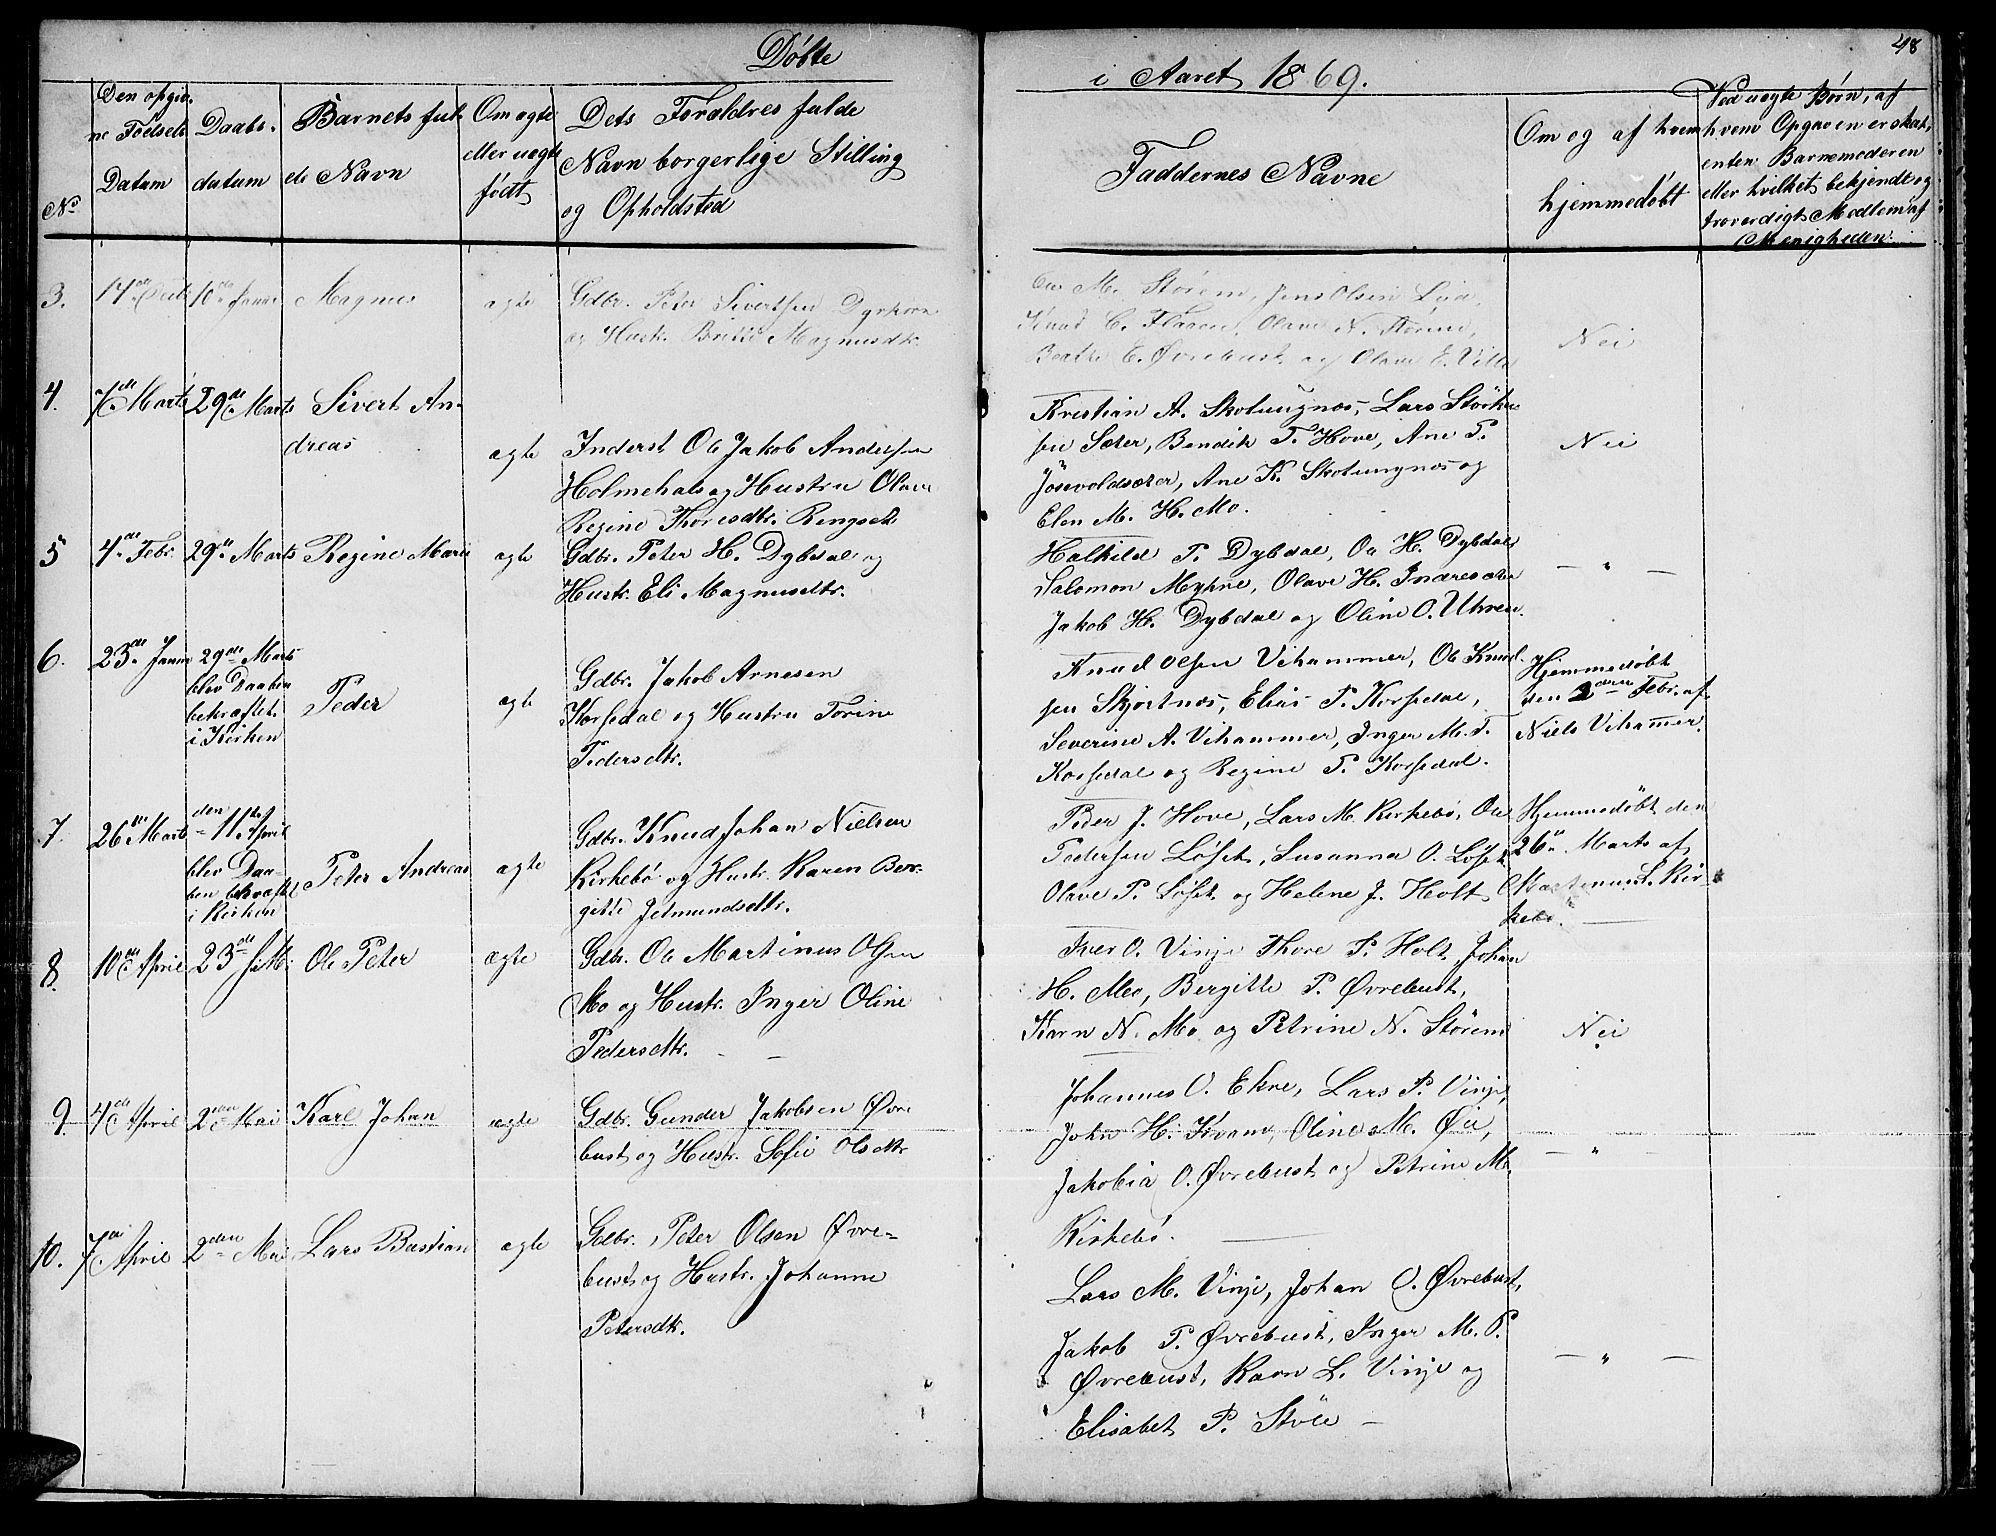 Døbte
i Aaret 1869.
48
No
Den opgiv.
ne Fødsels
Datum
Daabs.
datum
Barnets ful
de Navn
Om ægte
eller uægte
født
Dets Forældres fulde
Navn borgerlige Stilling
og Opholdsted
Faddernes Navne
Om og af hvem
hjemmedøbt
Ved uægte Børn, af
hvem Opgaven er skeet,
enten Barnemoderen
eller hvilket bekjendt og
troværdigt Medlem af
Menigheden.
3.
14de
10de Janr
Magnus
ægte
Gdbr. Peter Sivertsen Dyrkorn
og Hustr. Britte Magnusdtr.
M. Størem, Jens Olsen
Knud C. Flaaen, Olave N. Størem,
Beathe E. Øvrebust og Olave E.
Nei
4.
7de Marts
29de Marts
Sivert An-
dreas
ægte
Inderst Ole Jakob Andersen
Holmehals og Hustru Olave
Regine Thoresdtr. Ringset.
Kristian A. Skotungnæs, Lars Störker
sen Sæter, Bendik T. Hove, Ane P.
Jösvoldsæter, Ane K. Skotungnæs og
Elen M. H. Mo.
Nei
5
4de Febr.
29de Marts
Regine Marie
ægte
Gdbr. Peter H. Dybdal og
Hustr. Eli Magnusdtr.
Halkild P. Dybdal, Ole H. Dybdal,
Salomon Myhne, Olave H. Indresæter
Jakob H. Dybdal og Oline O. Uhren.
— " —
6.
23de Janu
29de Marts
blev Daaben
bekræftet
i Kirken
Peder
ægte
Gdbr. Jakob Arnesen
Korsedal og Hustru Torine
Pedersdtr.
Knud Olsen Vihammer, Ole Knud-
sen Skjortnæs, Elias P. Korsedal,
Severine A. Vihammer, Inger M. T.
Korsedal og Regine P. Korsedal.
Hjemmedøbt
den 2den Febr. af
Niels Vihammer.
7.
26de Marts
den
11te April
blev Daa-
ben bekræftet
i Kirken
Peter Andreas
ægte
Gdbr. Knud Johan Nielsen
Kirkebö og Hustr. Karen Ber-
gitte Jetmundsdtr.
Peder J. Hove, Lars M. Kirkebö, Ole
Pedersen Löset, Susanna O. Löset
Olave P. Löset og Helene J. Holt
Hjemmedöbt den
26de Marts af
Martinus L. Kir-
kebö.
8.
10de April
23de
Ole Peter
ægte
Gdbr. Ole Martinus Olsen
Mo og Hustr. Inger Oline
Pedersdtr.
Iver O. Vinje Thore P. Holt, Johan
H. Mo, Bergitte P. Øvrebust,
Karn N. Mo og Petrine N. Störem
Nei
9.
4de April
2den Mai
Karl Johan
ægte
Gdbr. Gunder Jakobsen Øvre
bust og Hustr. Sofie Olsdtr.
Johannes O. Ekre, Lars P. Vinje,
John H. Kvam, Oline M. Øie,
Jakobia O. Øvrebust og Petrine M.
Kirkebö.
— " —
10.
7de April
2den Mai
Lars Bastian
ægte
Gdbr. Peter Olsen Øvre-
bust og Hustr. Johanne
Petersdtr.
Lars M. Vinje, Johan O. Øvrebust,
Jakob P. Øvrebust, Inger M. P.
Øvrebust, Karn L. Vinje og
Elisabet P. Stöle —
— " —